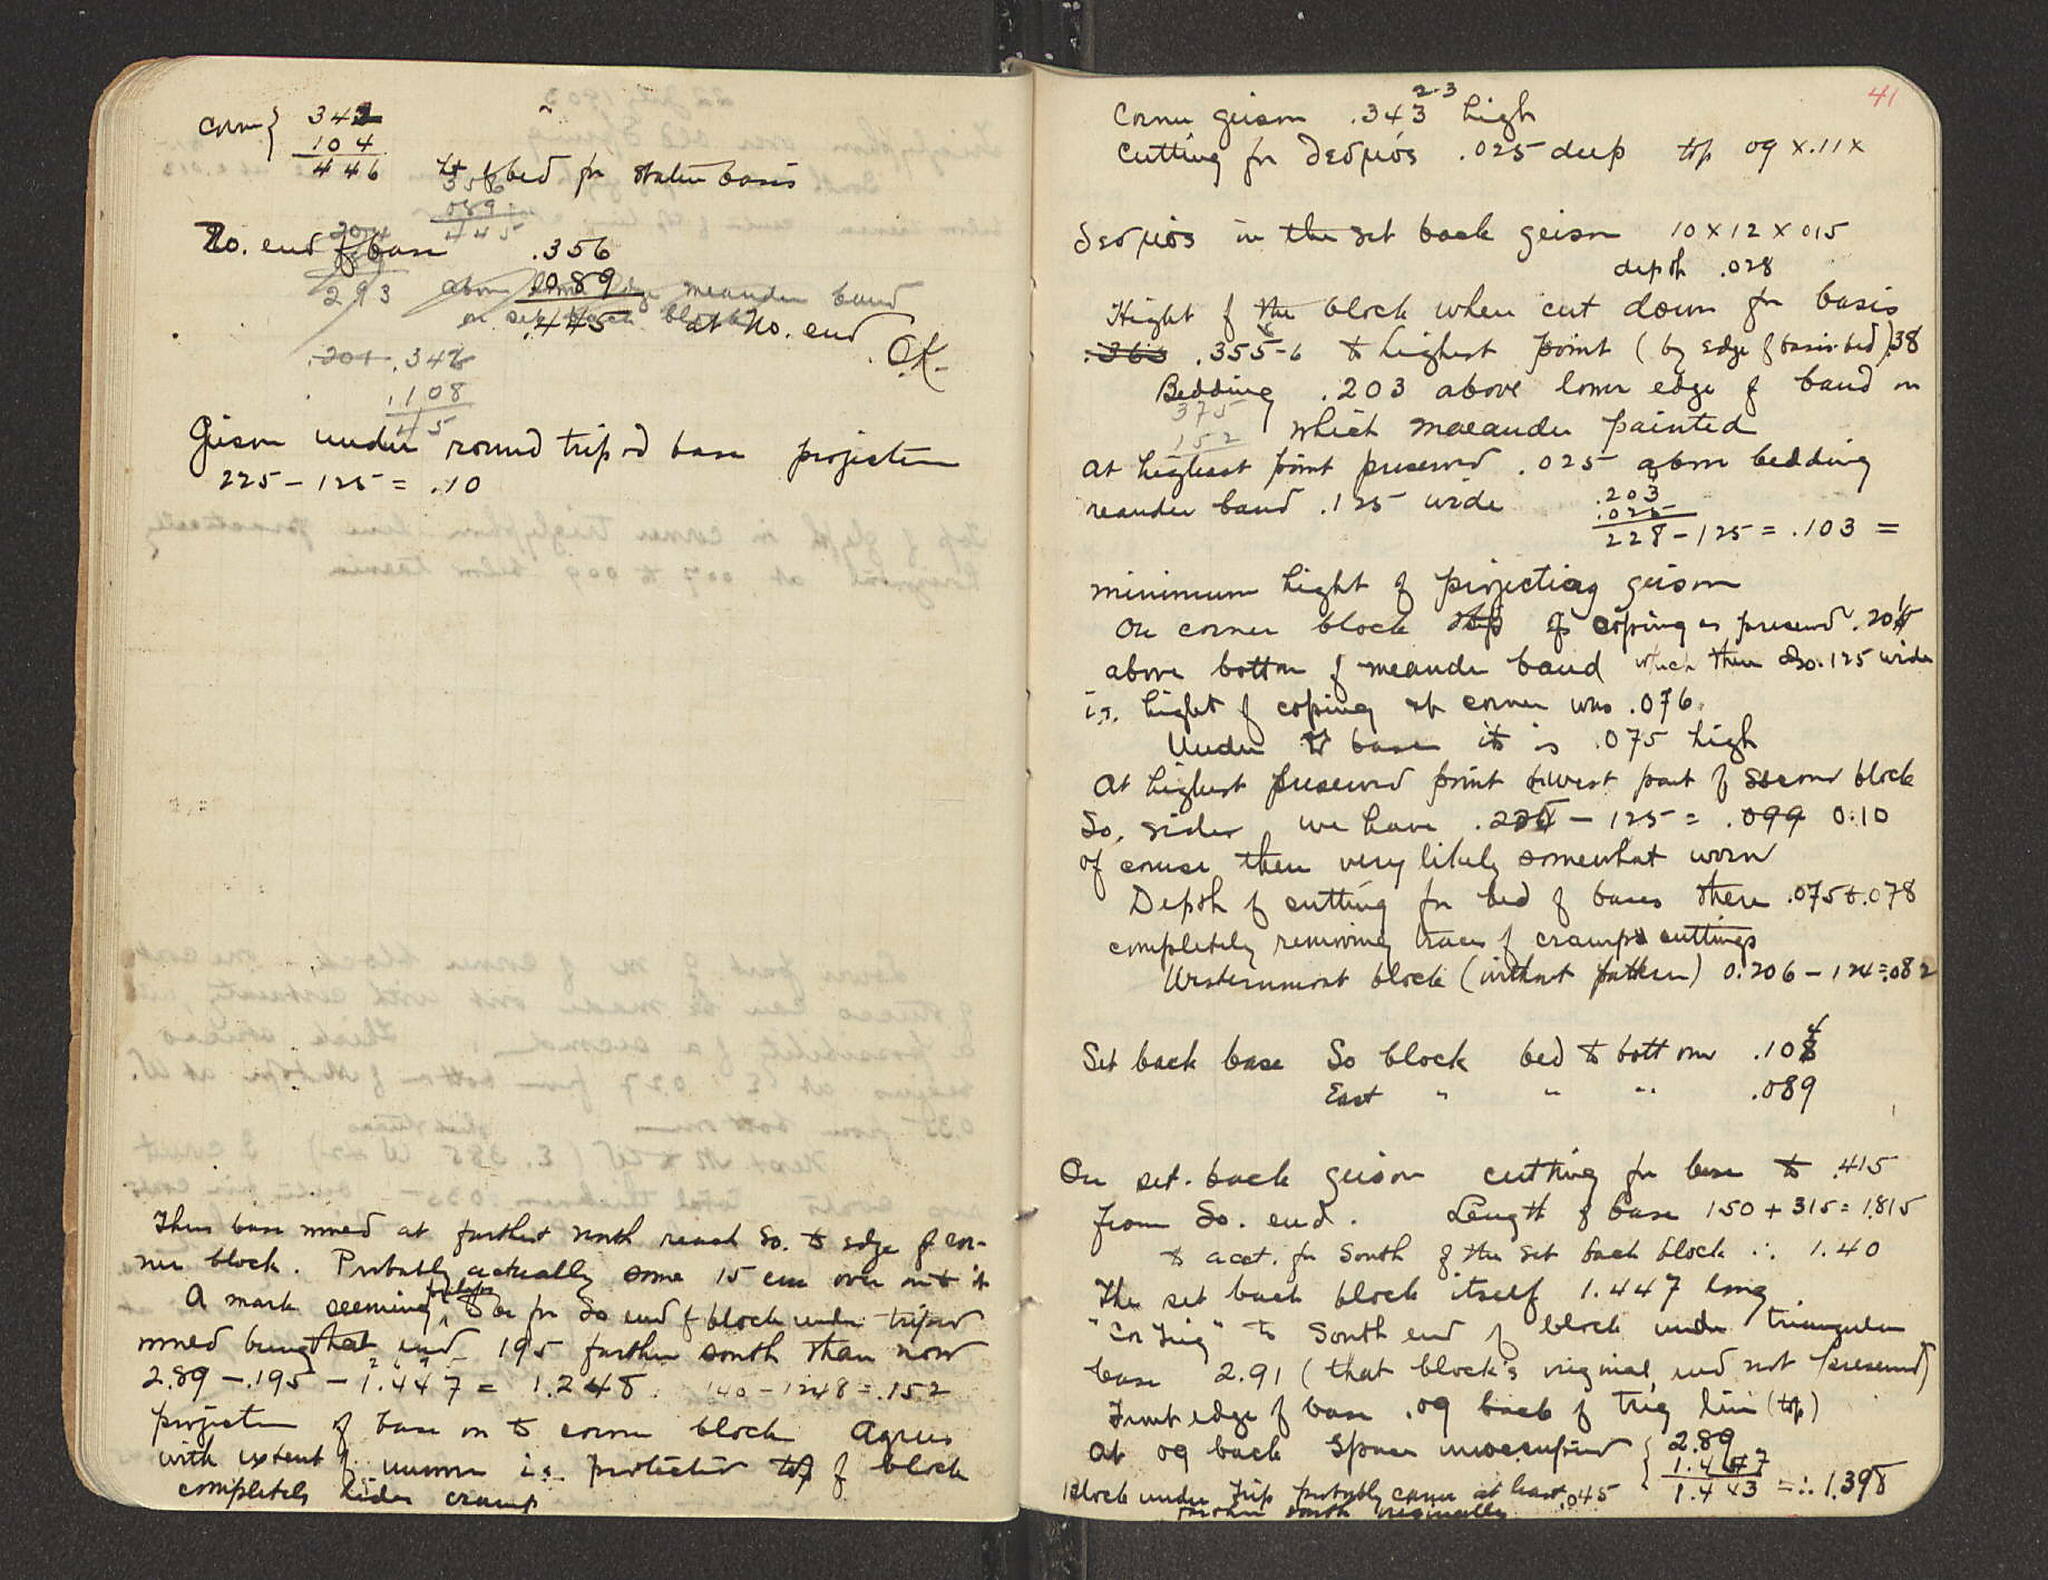 Corner { 342
104
446 Ht of bed for statue basis
356
089
445
No. end of base .356
.089
.445 at No. end
O.K.
204
293 above lower edge meander band
on set back block
.201 .342
.108
45
Geison under round tripod base projection
225 - 125 = .10
Then base moved at farthest north reach So. to edge of cor-
ner block. Probably actually some 15 cm over onto it
A mark seeming perhaps to be for So end of block under tripod
moved being that end 195 farther south than now
2.89 - .195 - 1.447 = 1.248. 140 - 1248 = .152
projection of base on to corner block Agrees
with extent of i.e. protected top of block
completely hides cramp
41
Corner geison .343 2-3 high
Cutting for δεσμός .025 deep top 09 x .11 x
δεσμός in the set back geison 10 x 12 x 015
depth .028
Hight of the block when cut down for basis
.363 .355-6 to highest point (by edge of basis bed) .38
Bedding .203 above lower edge of band on
375
152
which maeander painted
At highest point preserved .025 above bedding
meander band .125 wide
.203
.025
228 - 125 = .103 =
minimum hight of projecting geison
On corner block top of coping as preserved .201
above bottom of meander band which there also .125 wide
i.e. hight of coping at corner was .076
Under base it is .075 high
At highest preserved point west part of second block
So. side, we have - 125 = .099 0.10
of course there very likely somewhat worn
Depth of cutting for bed of bases there .075 to .078
completely removing traces of cramp cuttings
Westernmost block (without pattern) 0.206 - 124 = .082
Set back base So block bed to bottom .104
East " " " .089
On set-back geison cutting for base to .415
from So. end. Length of base 150 + 315 = 1.815
to acct. for South of the set back block ∴ 1.40
The set back block itself 1.447 long
"Cor Trig" to South end of block under triangular
base 2.91 (that block's original end not preserved)
Front edge of base .09 back of trig line (top)
At 09 back space unoccupied { 2.89
1.447
1.443 = ∴ 1.398
Block under Trip probably came at least .045
farther south originally